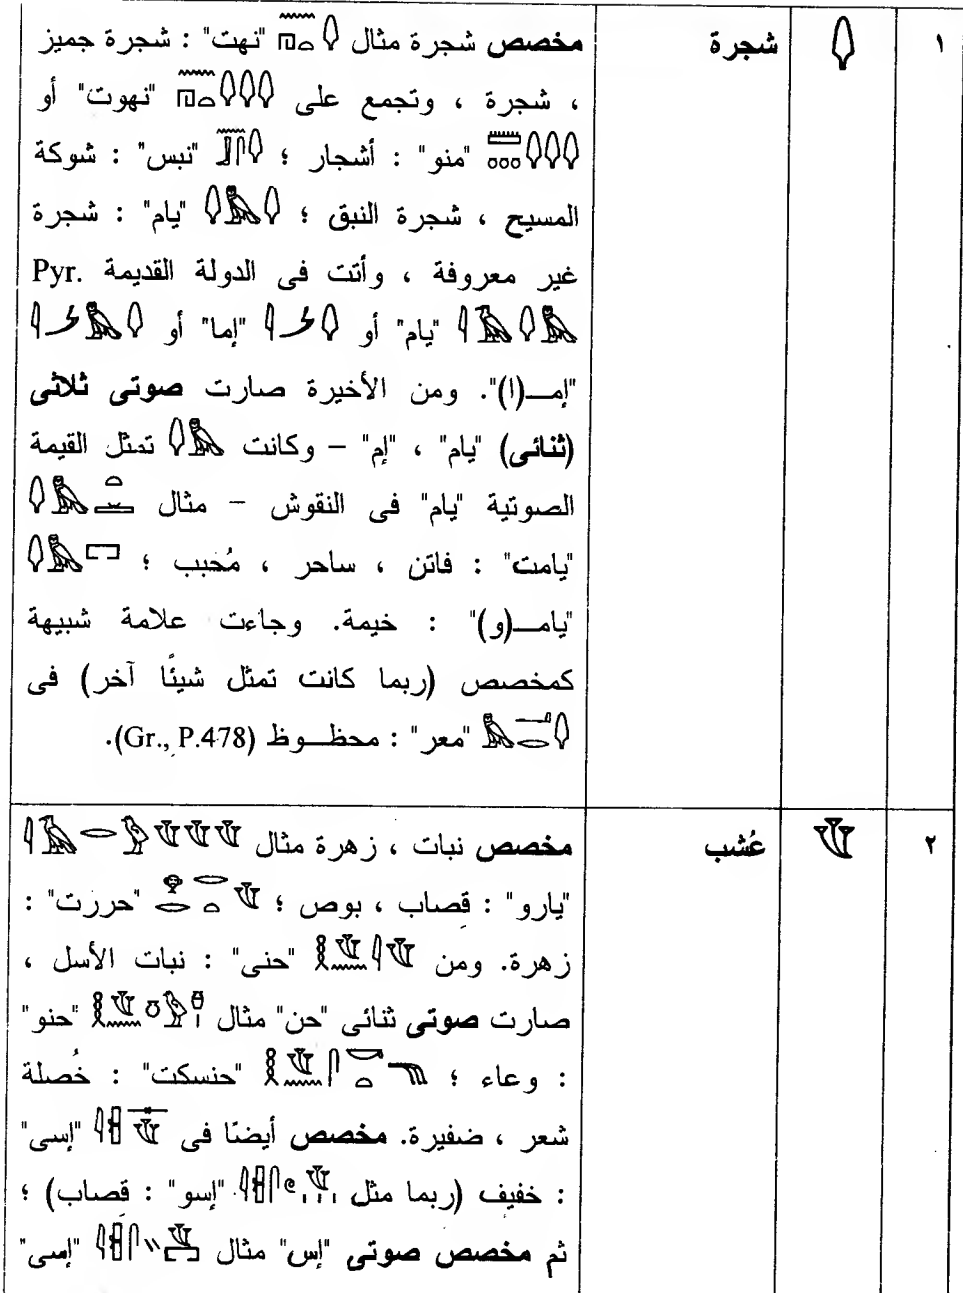 ١ 𓆭 شجرة مخصص شجرة مثال "نهت" : شجرة جميز
، شجرة ، وتجمع على "نهوت" أو
"منو" : أشجار ؛ "نبس" : شوكة
المسيح ، شجرة النبق ؛ "يام" : شجرة
غير معروفة ، وأتت فى الدولة القديمة Pyr.
"يام" أو "إما" أو
"إمـــ(ا)". ومن الأخيرة صارت صوتى ثلاثى
(ثنائى) "يام" ، "إم" – وكانت تمثل القيمة
الصوتية "يام" فى النقوش – مثال
"يامت" : فاتن ، ساحر ، مُحبب ؛
"يامـــ(و)" : خيمة. وجاءت علامة شبيهة
كمخصص (ربما كانت تمثل شيئًا آخر) فى
"معر" : محظـــوظ (Gr., P.478).
٢ 𓇗 عُشب مخصص نبات ، زهرة مثال
"يارو" : قصاب ، بوص ؛ "حررت" :
زهرة. ومن "حنى" : نبات الأسل ،
صارت صوتى ثنائى "حن" مثال "حنو"
: وعاء ؛ "حنسكت" : خُصلة
شعر ، ضفيرة. مخصص أيضًا فى "إسى"
: خفيف (ربما مثل "إسو" : قصاب) ؛
ثم مخصص صوتى "إس" مثال "إسى"